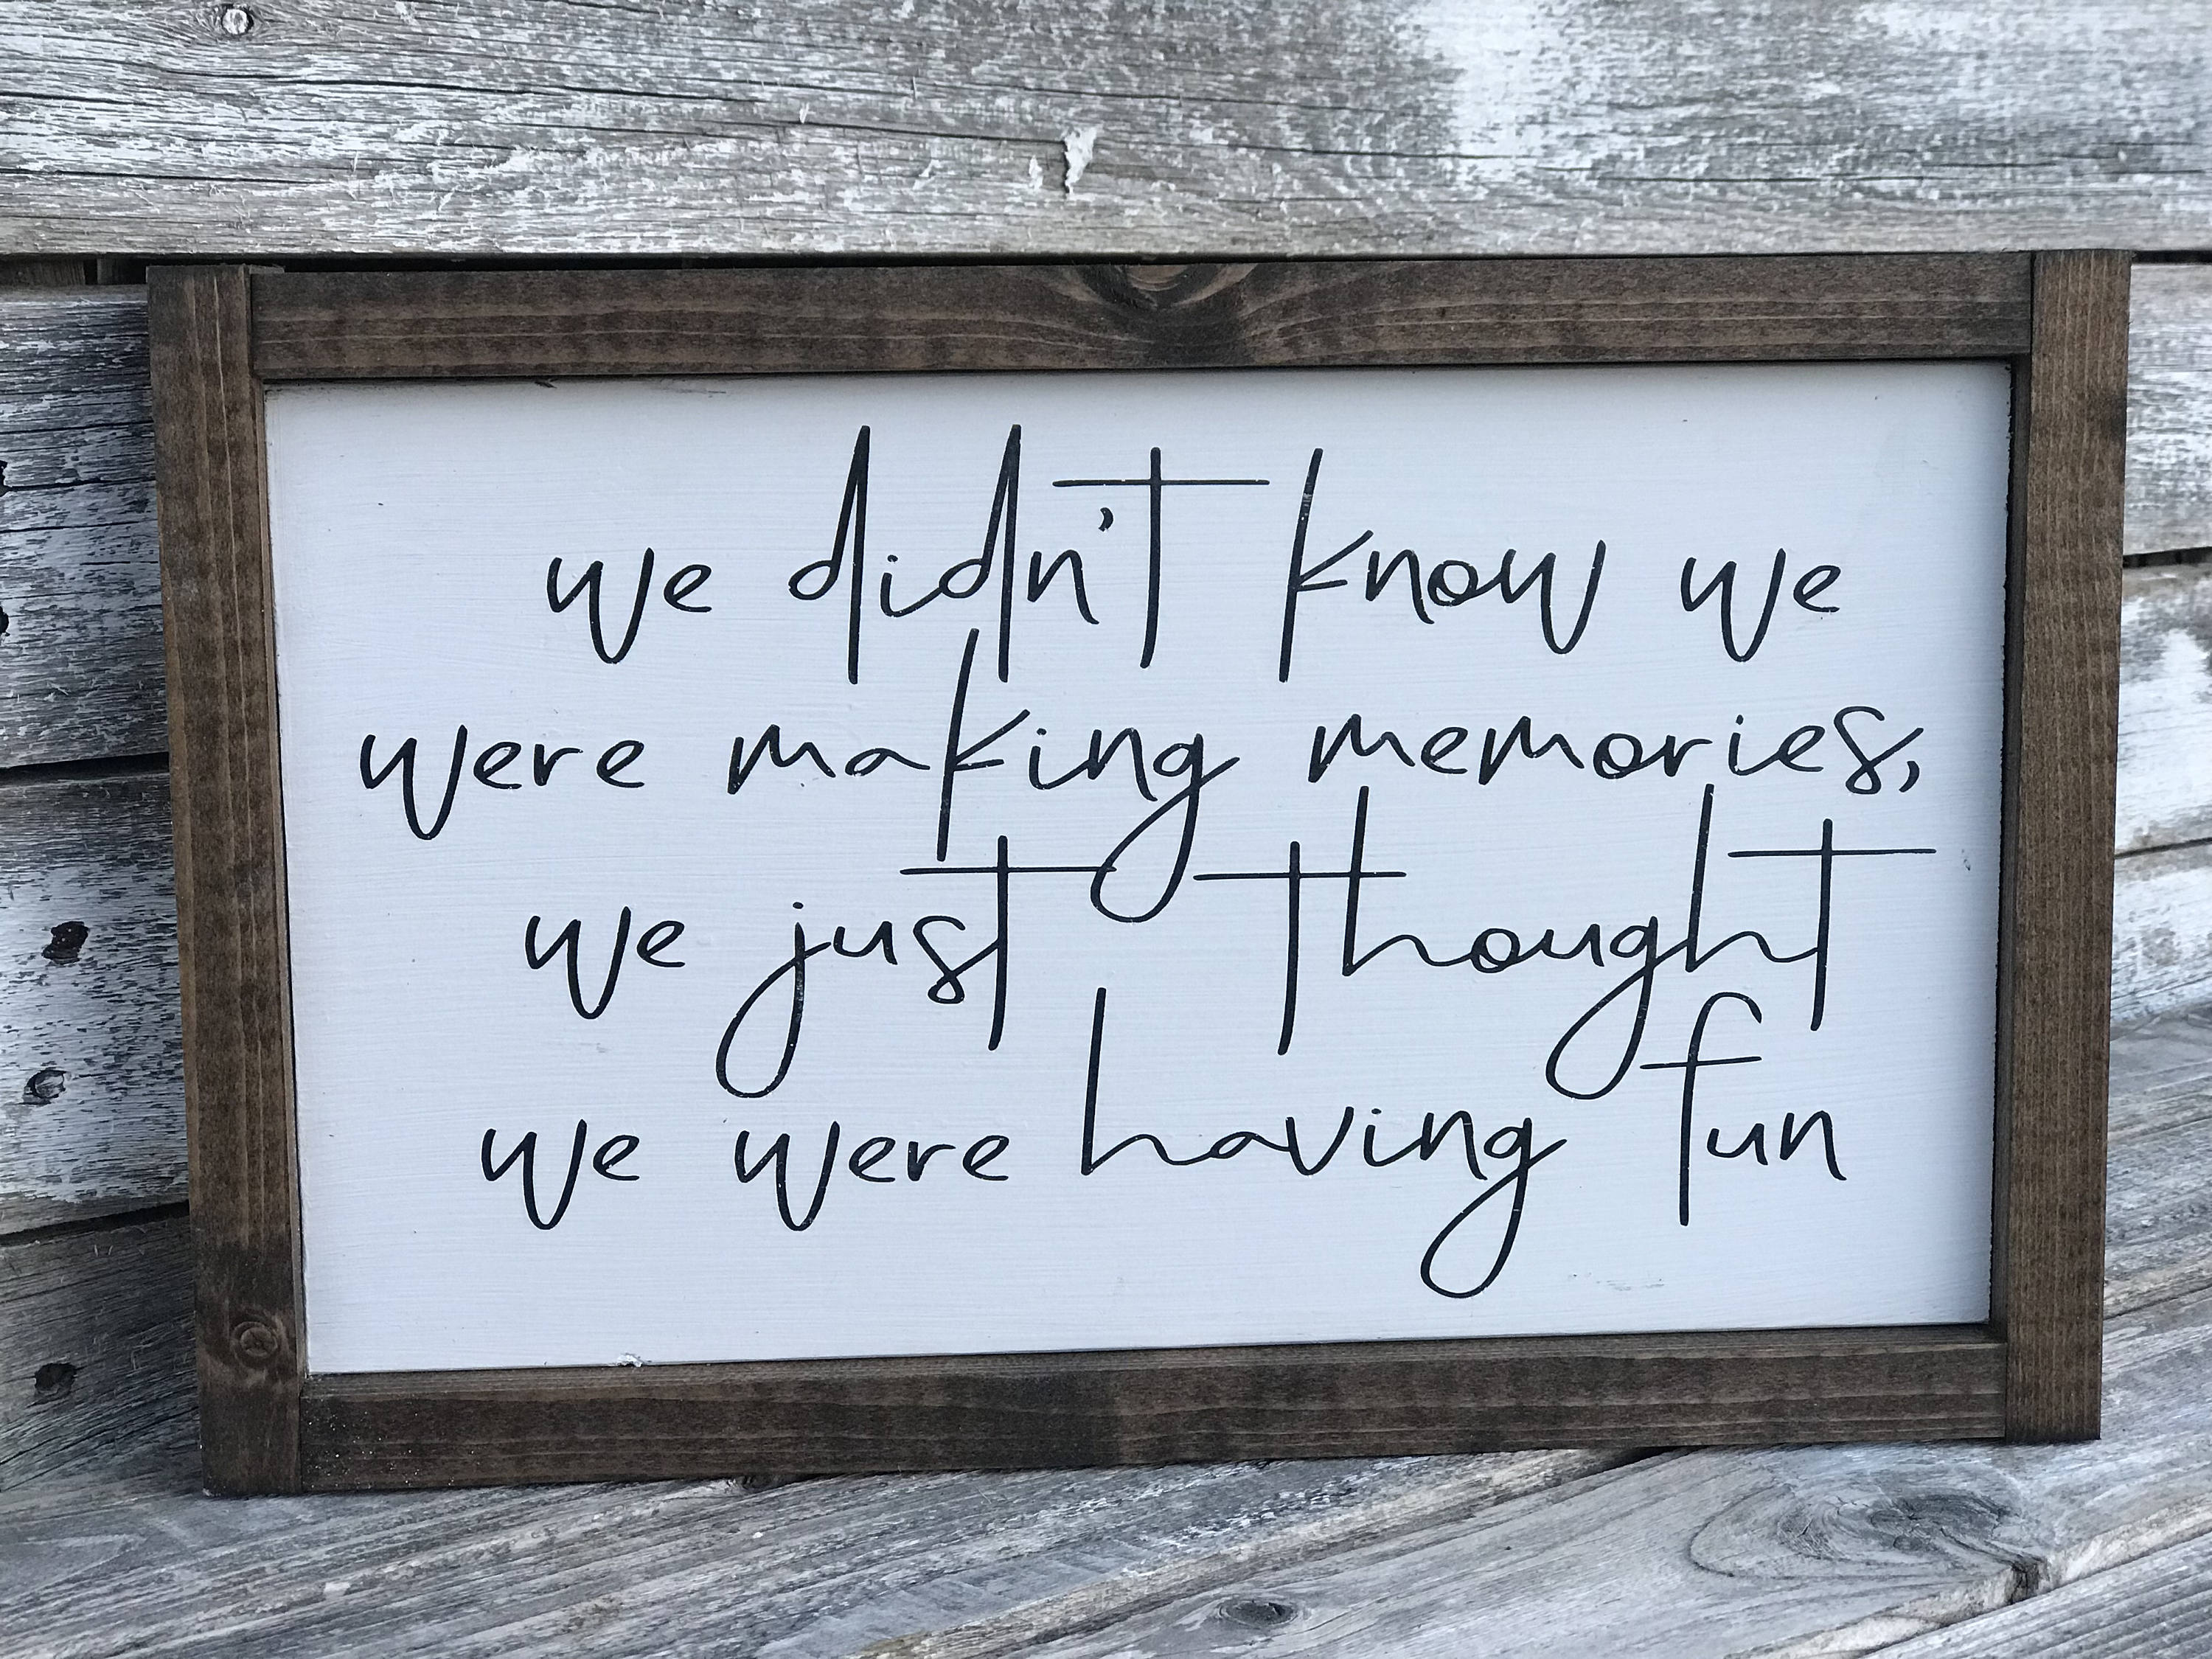 we didn't know we
were making memories,
we just thought
we were having fun